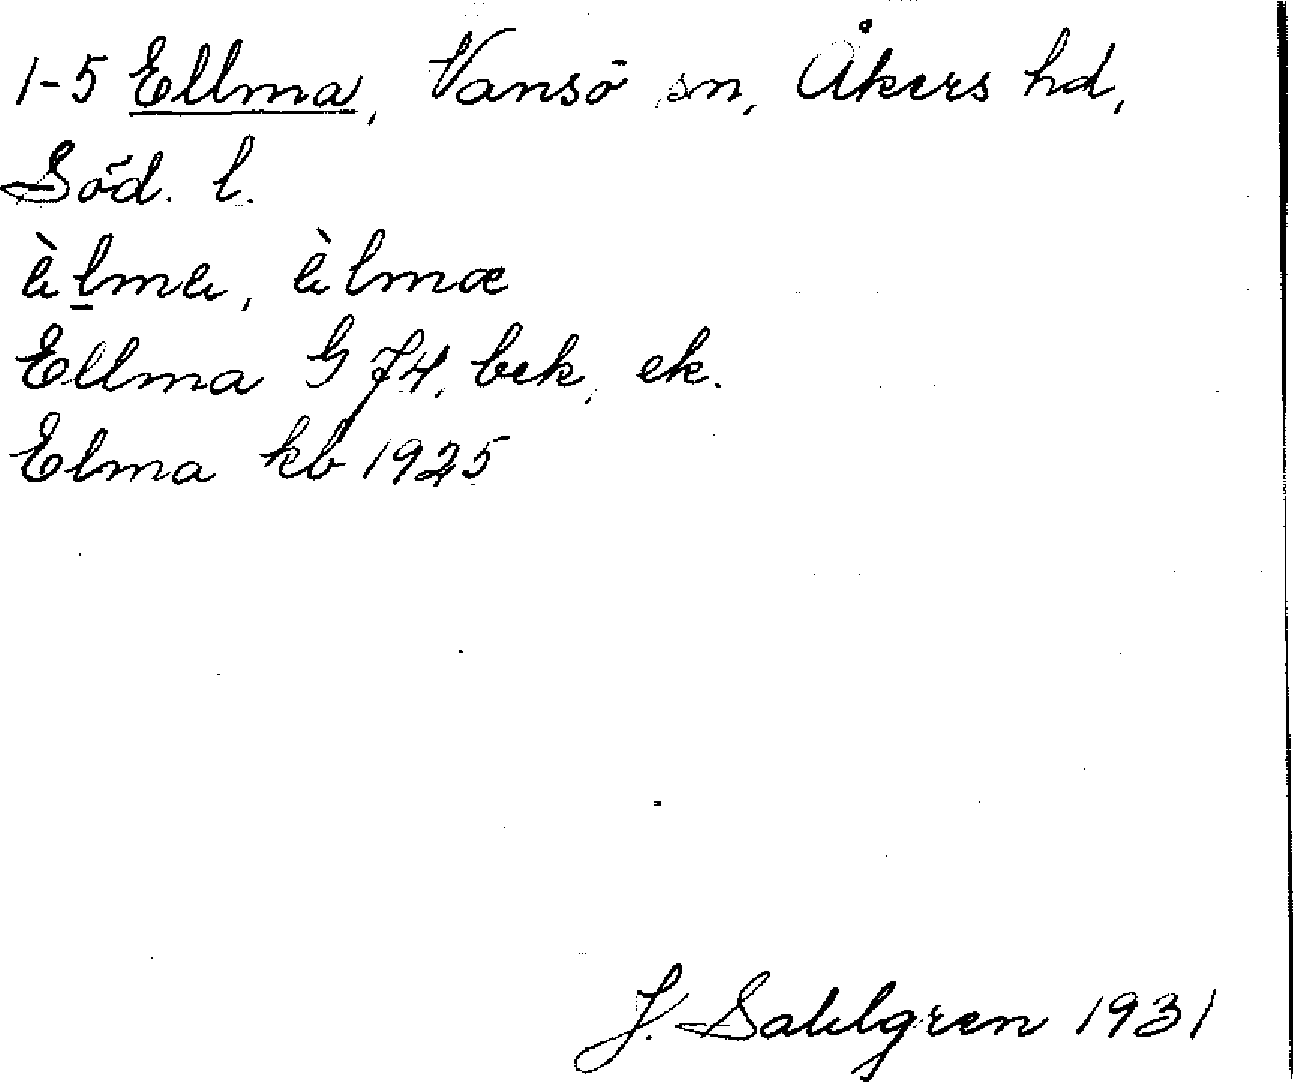 1-5 Ellma, Vansö sn, Åkers hd,
Söd. l.
èlma, èlmæ
Ellma G 74, bek, ek.
Elma kb 1925
J. Sahlgren 1931